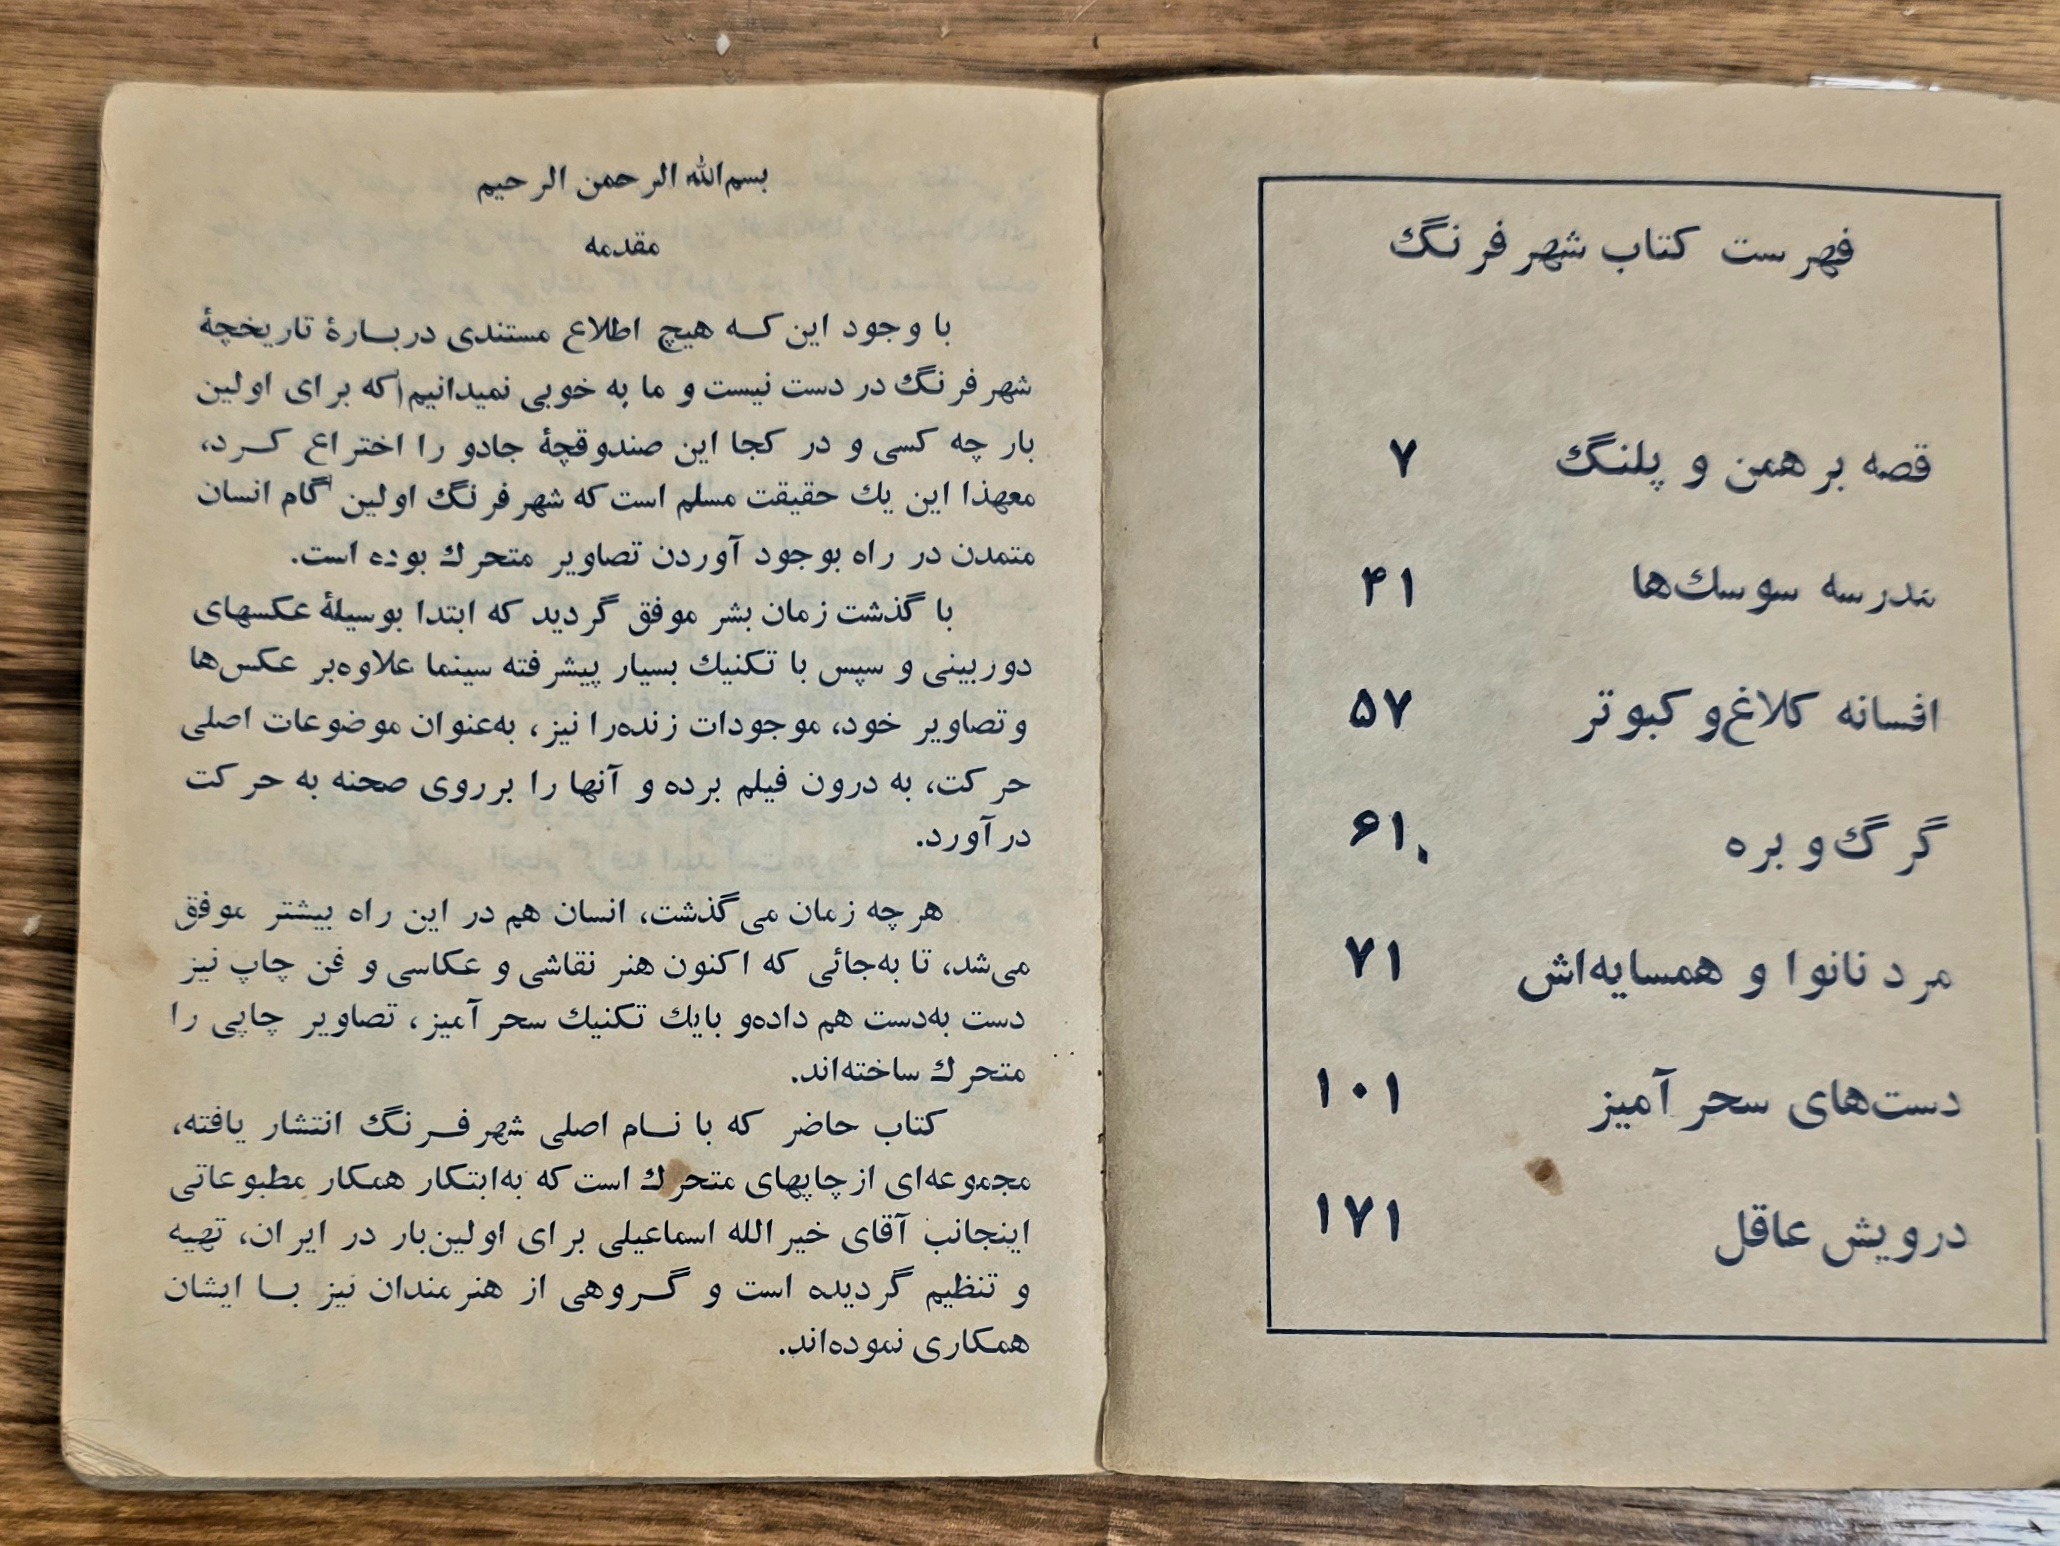 فهرست کتاب شهر فرنگ
قصه برهمن و پلنگ ۷
مدرسه سوسك‌ها ۴۱
افسانه کلاغ و کبوتر ۵۷
گرگ و بره ۶۱
مرد نانوا و همسایه‌اش ۷۱
دست‌های سحرآمیز ۱۰۱
درویش عاقل ۱۷۱
بسم‌الله الرحمن الرحیم
مقدمه
با وجود این که هیچ اطلاع مستندی دربارهٔ تاریخچهٔ
شهر فرنگ در دست نیست و ما به خوبی نمیدانیم که برای اولین
بار چه کسی و در کجا این صندوقچهٔ جادو را اختراع کرد،
معهذا این یك حقیقت مسلم است که شهر فرنگ اولین گام انسان
متمدن در راه بوجود آوردن تصاویر متحرك بوده است.
با گذشت زمان بشر موفق گردید که ابتدا بوسیلهٔ عکسهای
دوربینی و سپس با تکنیك بسیار پیشرفته سینما علاوه‌بر عکس‌ها
و تصاویر خود، موجودات زنده را نیز، به‌عنوان موضوعات اصلی
حرکت، به درون فیلم برده و آنها را برروی صحنه به حرکت
درآورد.
هرچه زمان می‌گذشت، انسان هم در این راه بیشتر موفق
می‌شد، تا به‌جائی که اکنون هنر نقاشی و عکاسی و فن چاپ نیز
دست به‌دست هم داده‌و بایك تکنیك سحرآمیز، تصاویر چاپی را
متحرك ساخته‌اند.
کتاب حاضر که با نام اصلی شهر فرنگ انتشار یافته،
مجموعه‌ای از چاپهای متحرك است که به‌ابتکار همکار مطبوعاتی
اینجانب آقای خیرالله اسماعیلی برای اولین‌بار در ایران، تهیه
و تنظیم گردیده است و گروهی از هنرمندان نیز با ایشان
همکاری نموده‌اند.